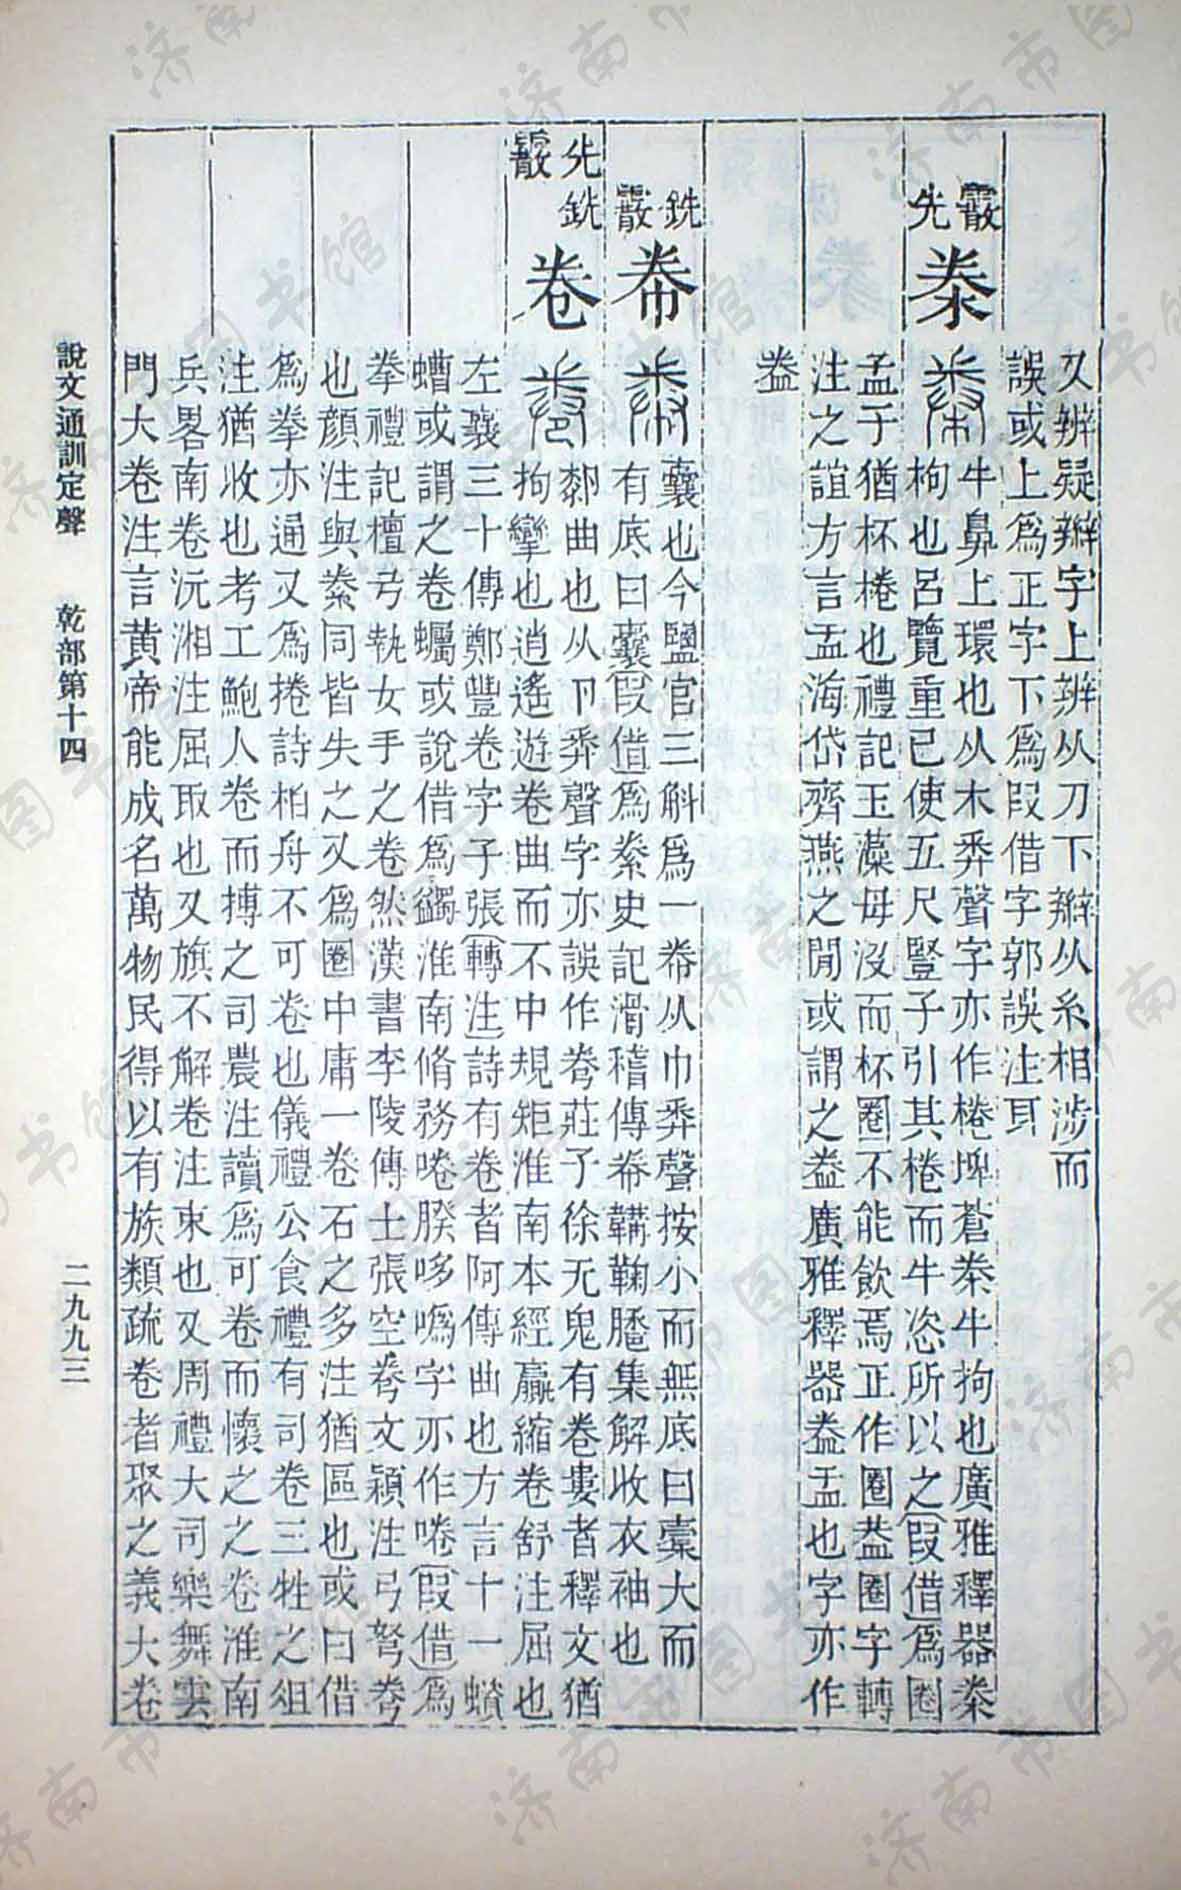 又辨疑辯字上辨从刀下辮从糸相涉而
誤或上爲正字下爲叚借字郭誤注耳
霰先
桊
牛鼻上環也从木𢍏聲字亦作棬埤蒼桊牛拘也廣雅釋器桊
枸也呂覽重已使五尺豎子引其棬而牛恣所以之叚借爲圈
孟子猶杯棬也禮記玉藻母沒而杯圈不能飲焉正作圈葢圈字轉
注之誼方言盂海岱齊燕之閒或謂之盎廣雅釋器盎盂也字亦作
銑霰
帣
囊也今鹽官三斛爲一帣从巾𢍏聲按小而無底曰橐大而
有底曰囊叚借爲絭史記滑稽傳帣韝鞠䠆集解收衣袖也
先銑霰
卷
厀曲也从卪𢍏聲字亦誤作眷莊子徐无鬼有卷婁者釋文猶
拘攣也逍遙遊卷曲而不中規矩淮南本經羸縮卷舒注屈也
左襄三十傳鄭豐卷字子張轉注詩有卷者阿傳曲也方言十一蠀
螬或謂之卷蠾或說借爲蠲淮南脩務啳䐧哆噅字亦作啳叚借爲
拳禮記檀弓執女手之卷然漢書李陵傳士張空弮文穎注弓弩弮
也顏注與絭同皆失之又爲圈中庸一卷石之多注猶區也或曰借
爲拳亦通又爲捲詩柏舟不可卷也儀禮公食禮有司卷三牲之俎
注猶收也考工鮑人卷而摶之司農注讀爲可卷而懷之之卷淮南
兵畧南卷沅湘注屈取也又旗不解卷注束也又周禮大司樂舞雲
門大卷注言黃帝能成名萬物民得以有族類疏卷者聚之義大卷
說文通訓定聲　乾部第十四　二九九三